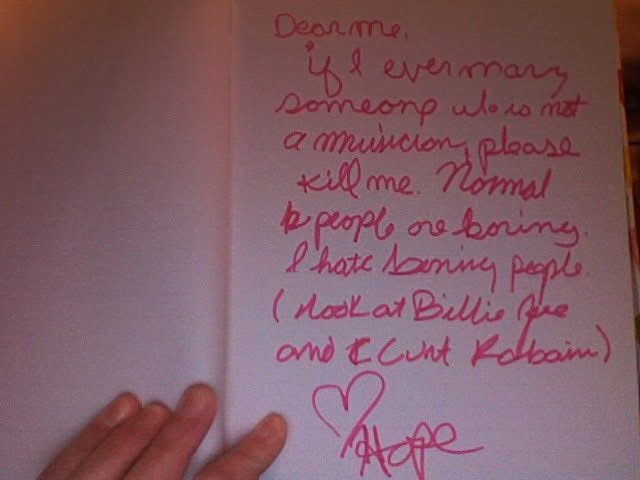 Dear me,
if I ever mary
someone who is not
a musicion, please
kill me. Normal
people are boring.
I hate boring people.
(look at Billie Joe
and Curt Kobain)
Hope